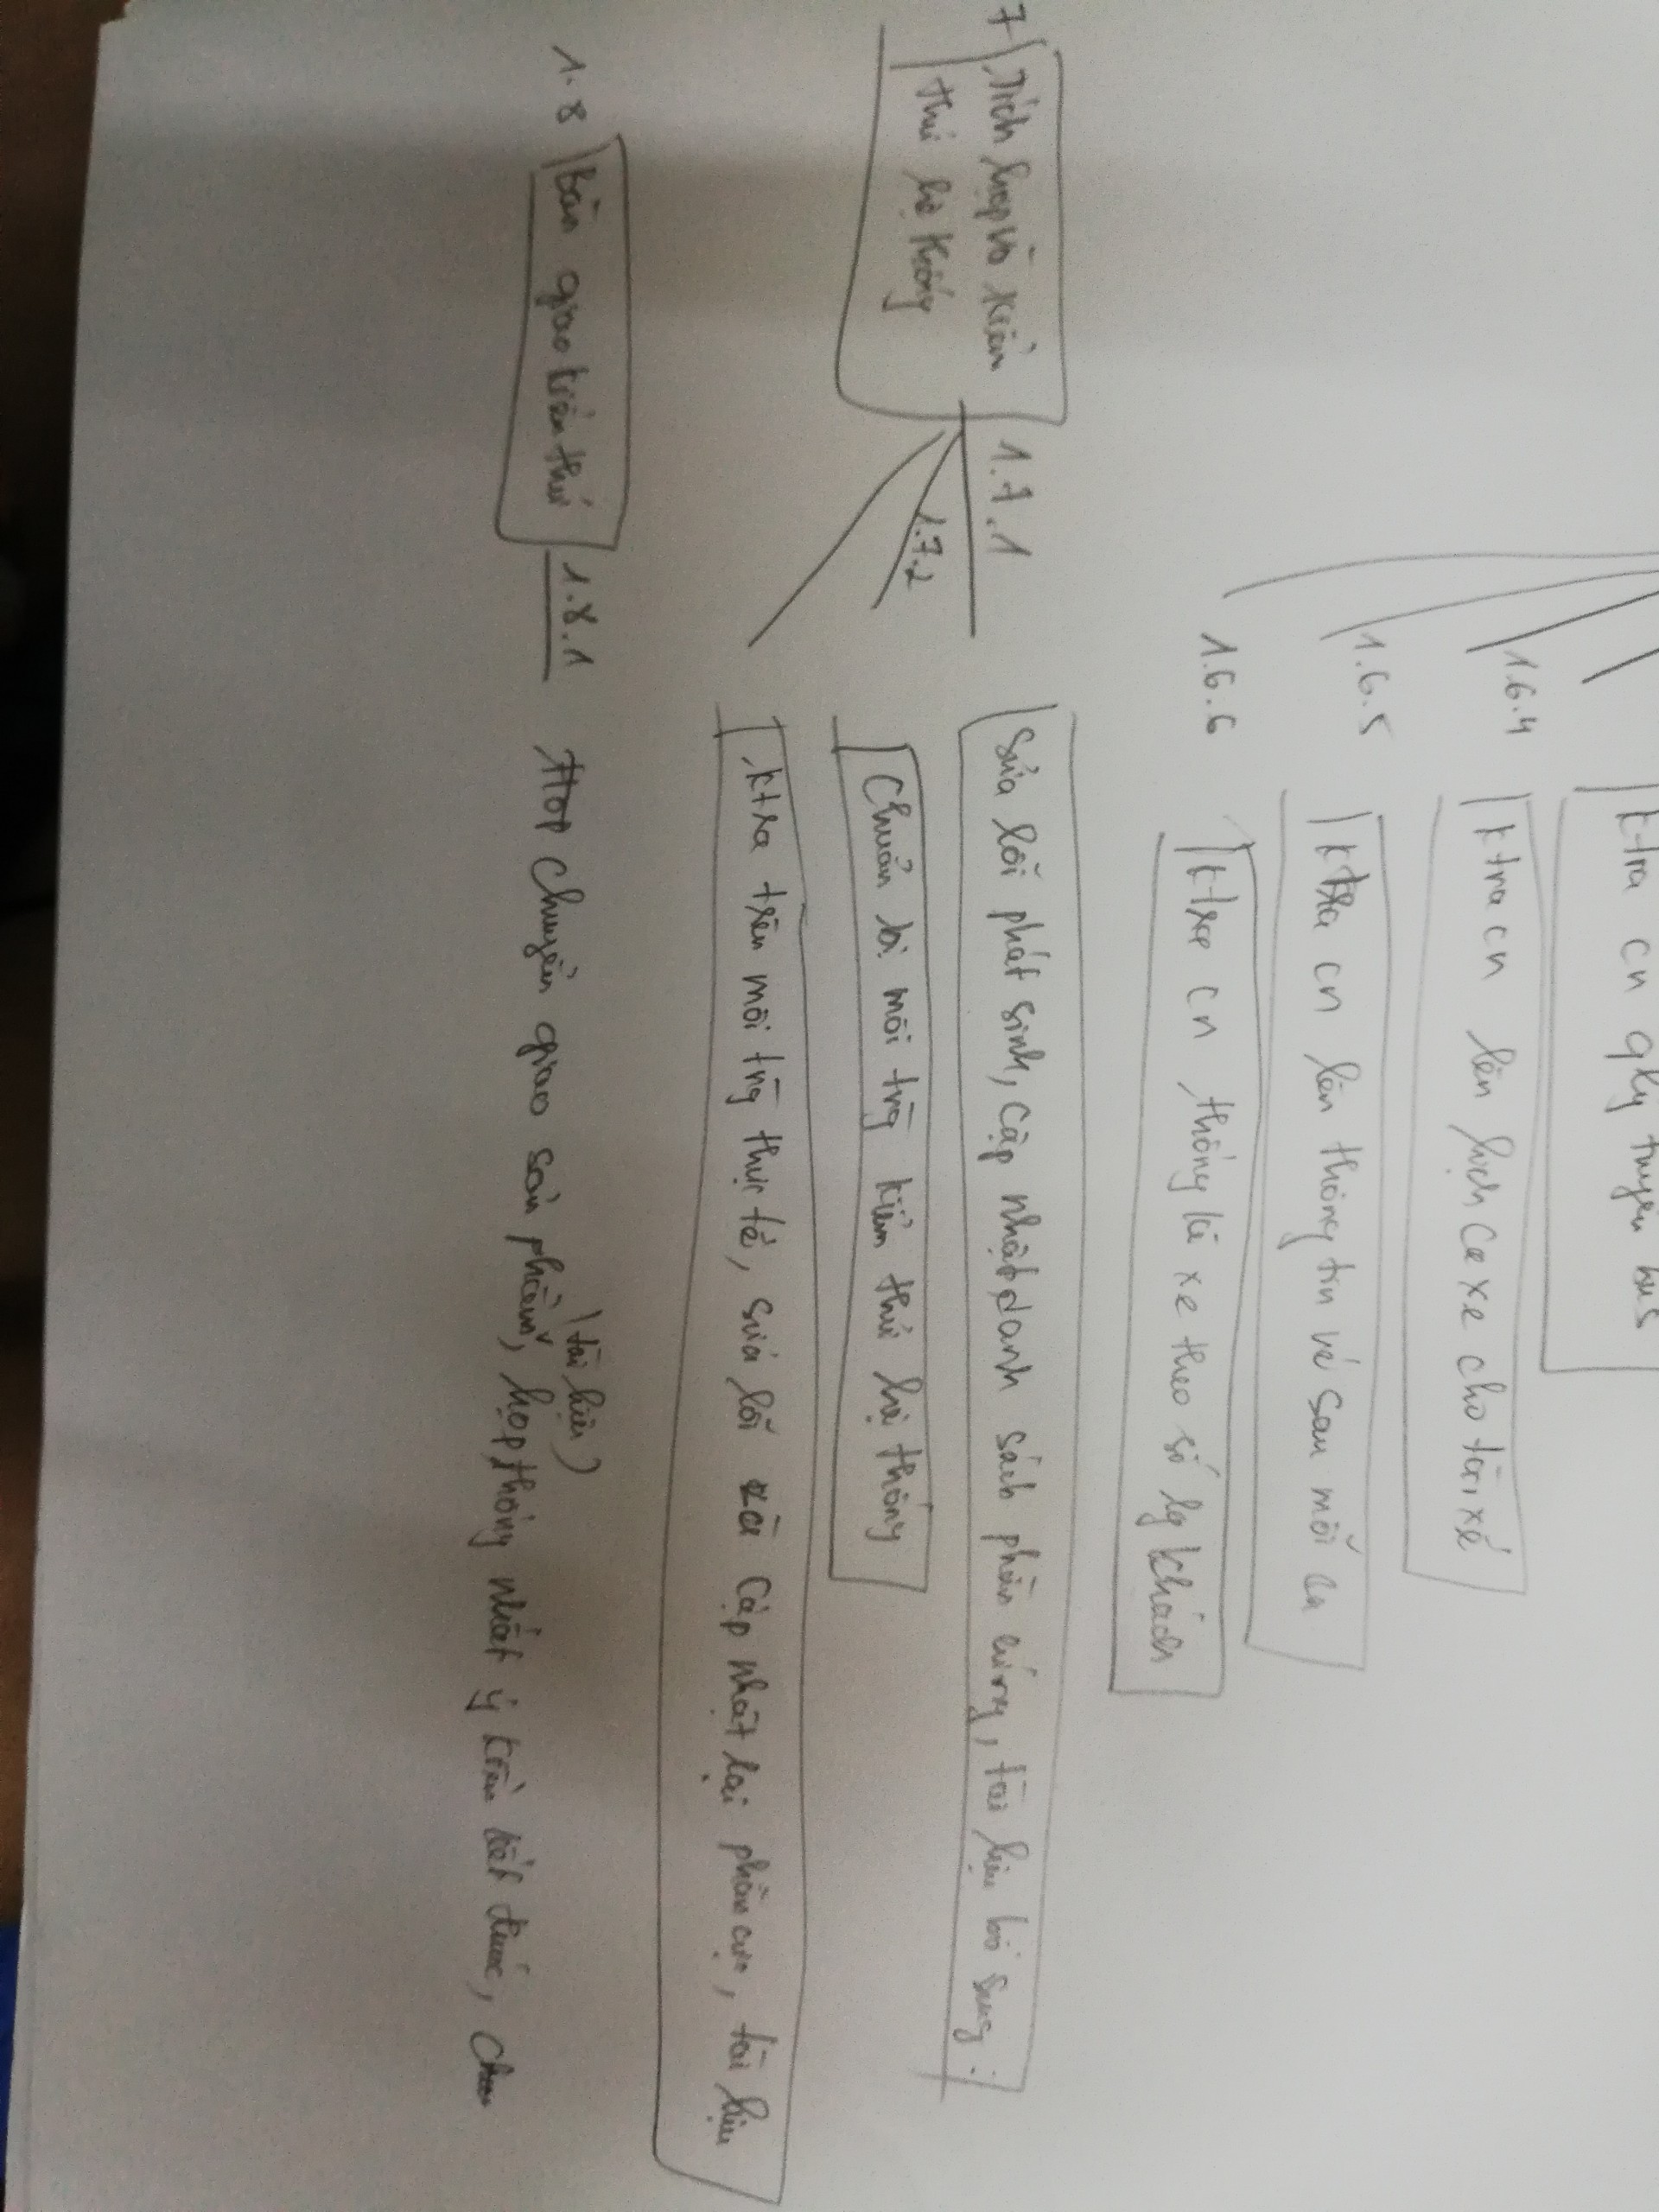 ktra cn qlý tuyến bus
1.6.4 ktra cn lên lịch ca xe cho tài xế
1.6.5 ktra cn lên thông tin vé sau mỗi ca
1.6.6 ktra cn thống kê xe theo số lg khách
7 Tích hợp và kiểm
thử hệ thống
1.7.1 Sửa lỗi phát sinh, cập nhật danh sách phần cứng, tài liệu bổ sung
1.7.2 Chuẩn bị môi trg kiểm thử hệ thống
ktra trên môi trg thực tế, sửa lỗi và cập nhật lại phần cứng, tài liệu
1.8 Bàn giao kiểm thử 1.8.1 Chuyển giao sản phẩm, họp thống nhất ý kiến kết thúc,
(tài liệu)